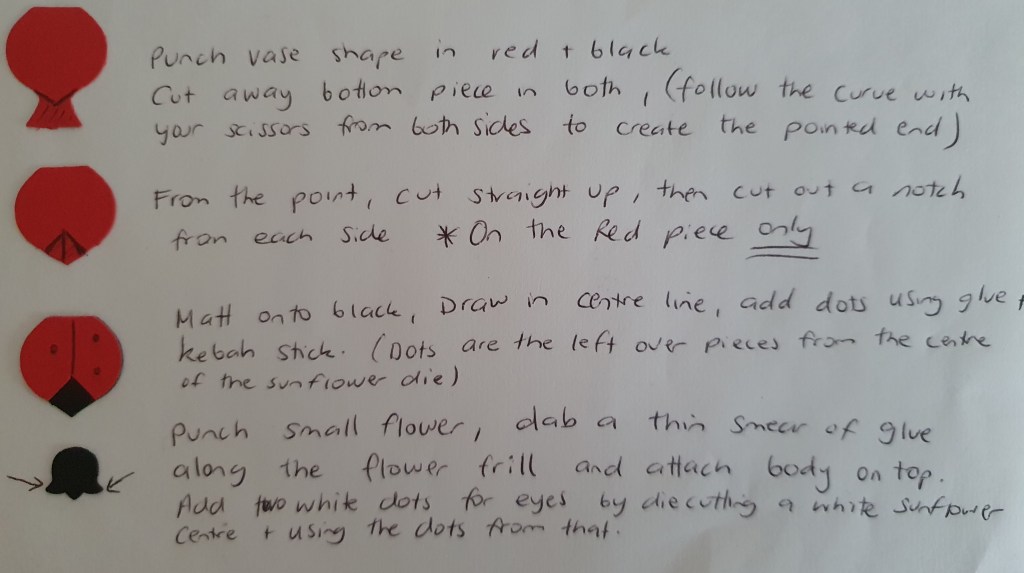 Punch vase shape in red + black
Cut away bottom piece in both, (follow the curve with
your scissors from both sides to create the pointed end)
From the point, cut straight up, then cut out a notch
from each side * On the Red piece only
Matt onto black, Draw in centre line, add dots using glue +
kebab stick. (Dots are the left over pieces from the centre
of the sunflower die)
Punch small flower, dab a thin smear of glue
along the flower frill and attach body on top.
Add two white dots for eyes by diecutting a white sunflower
centre + using the dots from that.